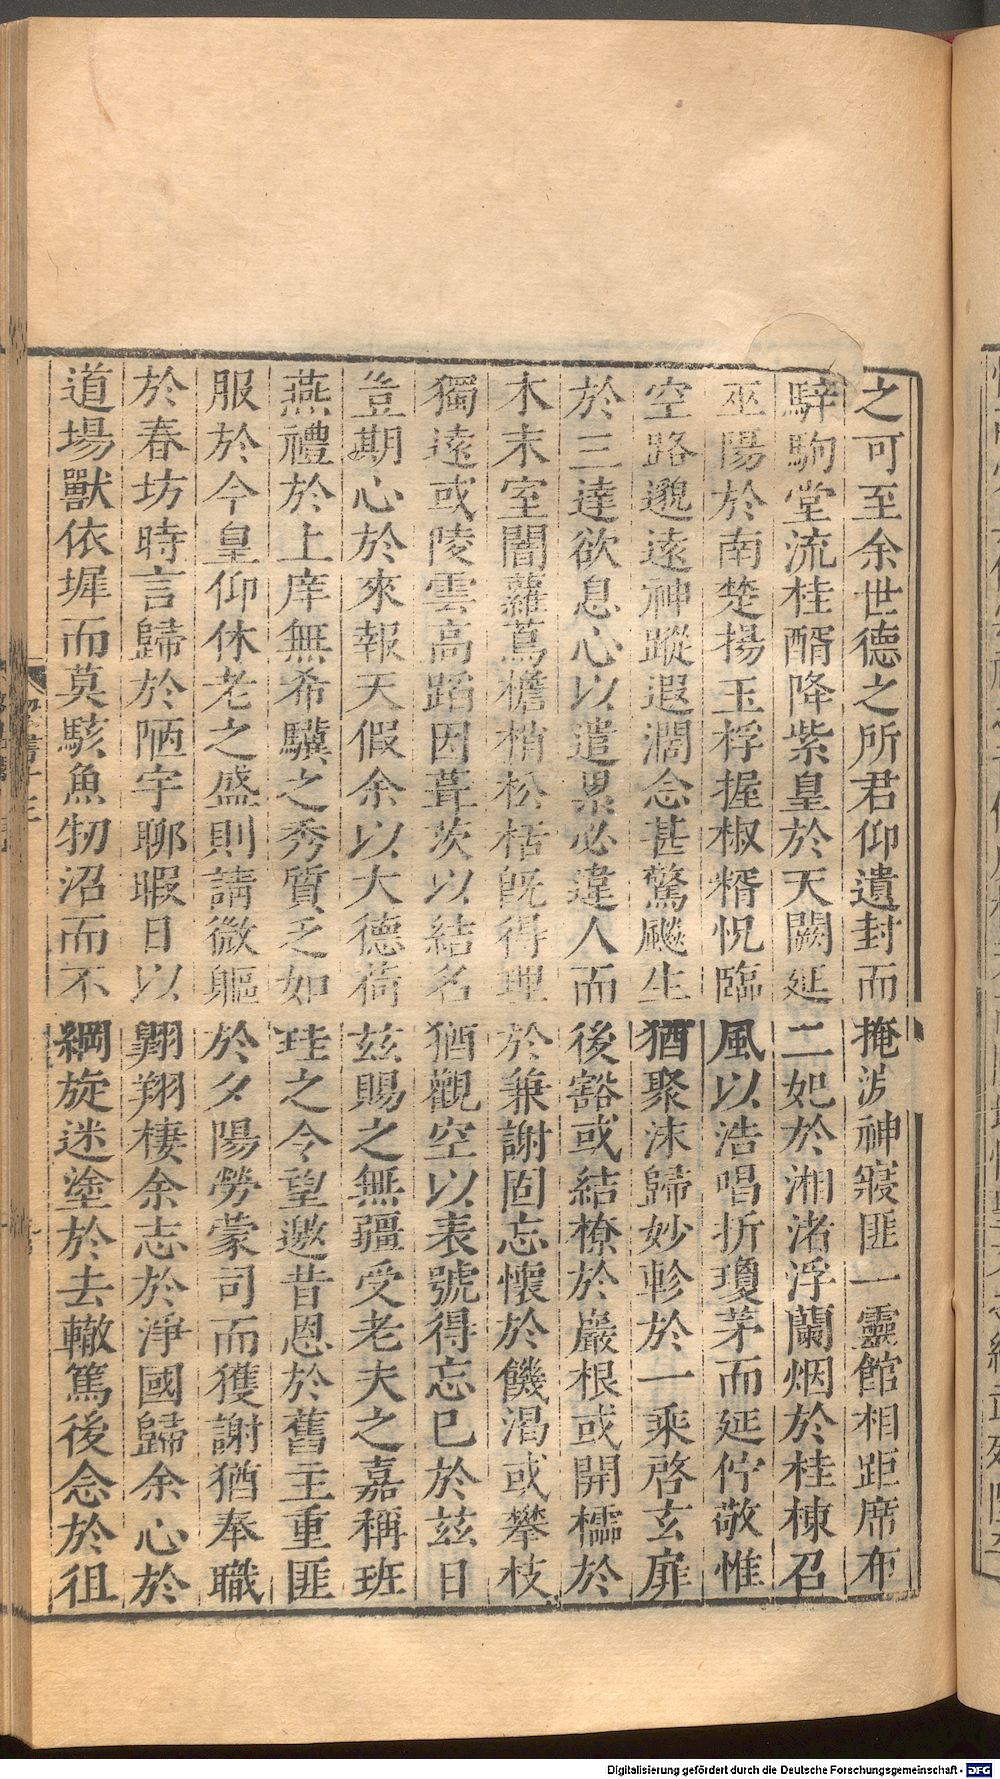 之可至余世德之所君仰遺封而掩淚神寢匪一靈館相距席布
騂駒堂流桂醑降紫皇於天闕延二妃於湘渚浮蘭烟於桂棟召
巫陽於南楚揚玉桴握椒糈怳臨風以浩唱折瓊茅而延佇敬惟
空路邈遠神蹤遐濶念甚驚飈生猶聚沫歸妙軫於一乘啓玄扉
於三達欲息心以遣累必違人而後豁或結橑於巖根或開櫺於
木末室闇蘿蔦檐梢松栝旣得理於兼謝固忘懷於饑渴或攀枝
獨遠或陵雲高蹈因葺茨以結名猶觀空以表號得忘已於茲日
豈期心於來報天假余以大德荷茲賜之無疆受老夫之嘉稱班
燕禮於上庠無希驥之秀質乏如珪之令望邀昔恩於舊主重匪
服於今皇仰休老之盛則請微軀於夕陽勞蒙司而獲謝猶奉職
於春坊時言歸於陋宇聊暇日以翺翔棲余志於淨國歸余心於
道場獸依墀而莫駭魚牣沼而不綱旋迷塗於去轍篤後念於徂
Digitalisierung gefördert durch die Deutsche Forschungsgemeinschaft - DFG